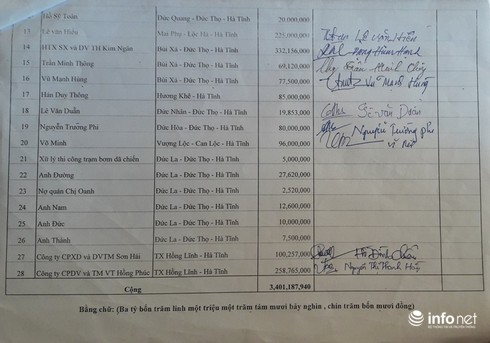 Hồ Sỹ Toàn Đức Quang - Đức Thọ - Hà Tĩnh 20,000,000
13 Lê văn Hiền Mai Phụ - Lộc Hà - Hà Tĩnh 225,000,000 Lê văn Hiền
14 HTX SX và DV TH Kim Ngân Bùi Xá - Đức Thọ - Hà Tĩnh 332,156,000
15 Trần Minh Thông Bùi Xá - Đức Thọ - Hà Tĩnh 69,120,000
16 Vũ Mạnh Hùng Bùi Xá - Đức Thọ - Hà Tĩnh 77,500,000 Vũ Mạnh Hùng
17 Hán Duy Thông Hương Khê - Hà Tĩnh 87,000,000
18 Lê Văn Duẫn Đức Nhân - Đức Thọ - Hà Tĩnh 19,853,000 Lê văn
19 Nguyễn Trường Phi Đức Hòa - Đức Thọ - Hà Tĩnh 80,000,000 Nguyễn Trường phi
20 Võ Minh Vượng Lộc - Can Lộc - Hà Tĩnh 96,000,000
21 Xử lý thi công trạm bơm đã chiến Đức La - Đức Thọ - Hà Tĩnh 5,000,000
22 Anh Đường Đức La - Đức Thọ - Hà Tĩnh 27,620,000
23 Nợ quán Chị Oanh Đức La - Đức Thọ - Hà Tĩnh 2,520,000
24 Anh Nam Đức La - Đức Thọ - Hà Tĩnh 12,600,000
25 Anh Đức Đức La - Đức Thọ - Hà Tĩnh 10,000,000
26 Anh Thành Đức La - Đức Thọ - Hà Tĩnh 7,500,000
27 Công ty CPXD và DVTM Sơn Hải TX Hồng Lĩnh - Hà Tĩnh 100,257,000
28 Công ty CPDV và TM VT Hồng Phúc TX Hồng Lĩnh - Hà Tĩnh 258,765,000 Nguyễn Thị Thanh
Cộng 3,401,187,940
Bằng chữ: (Ba tỷ bốn trăm linh một triệu một trăm tám mươi bảy nghìn , chín trăm bốn mươi đồng)
infonet